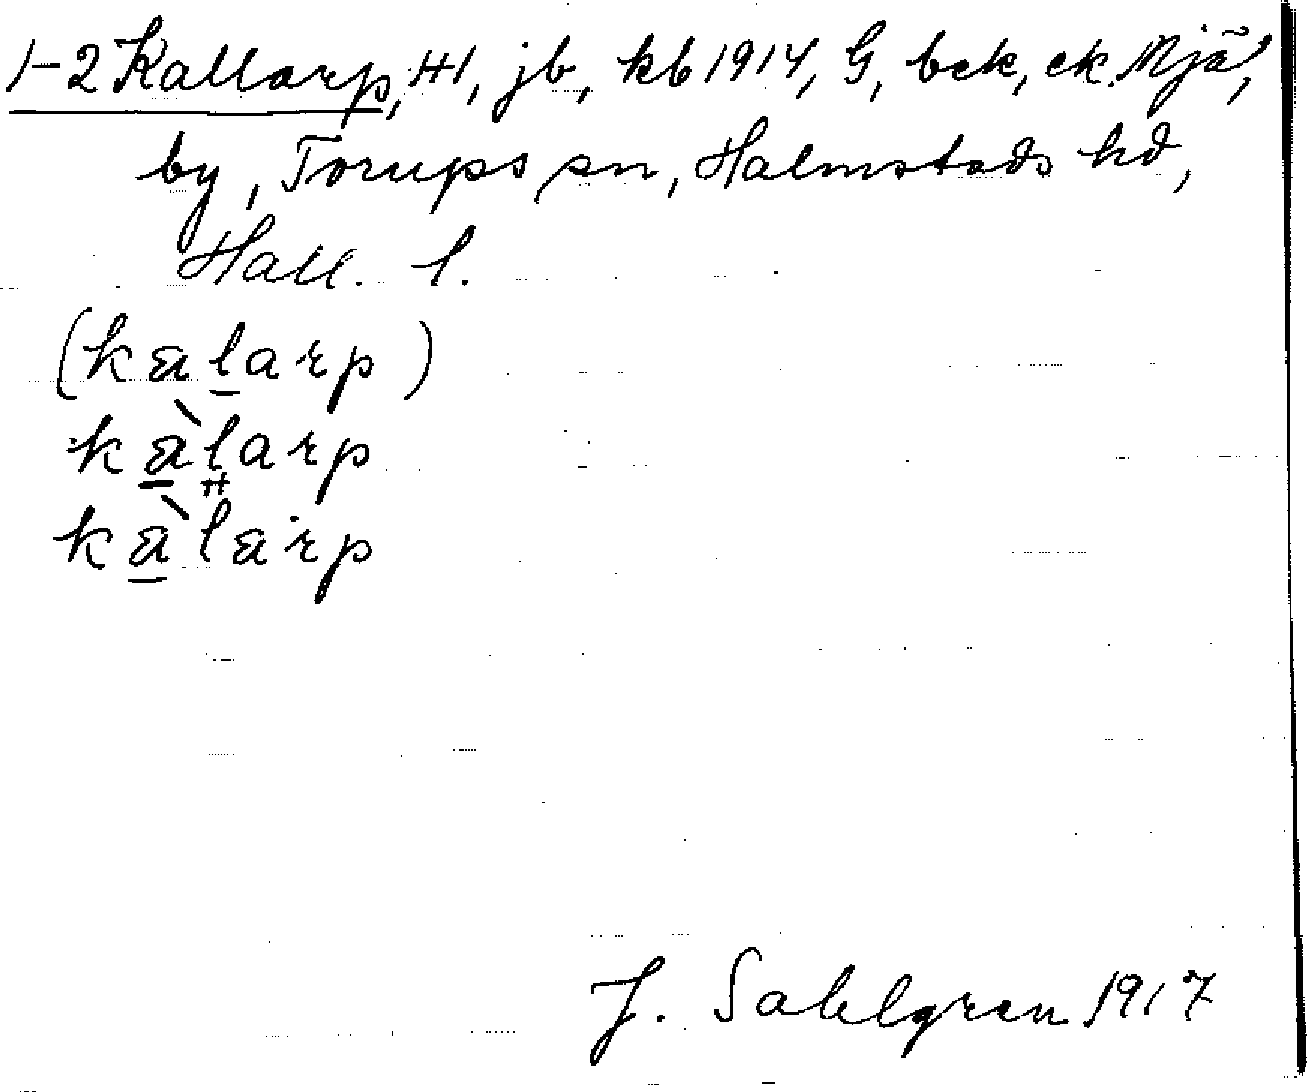 1-2 Kallarp, H1, jb, kb 1914, G, bek, ek. Mjä,
by, Torups sn, Halmstads hd,
Hall. l.
(kalarp)
kàlarp
kàlarp
J. Sahlgren 1917